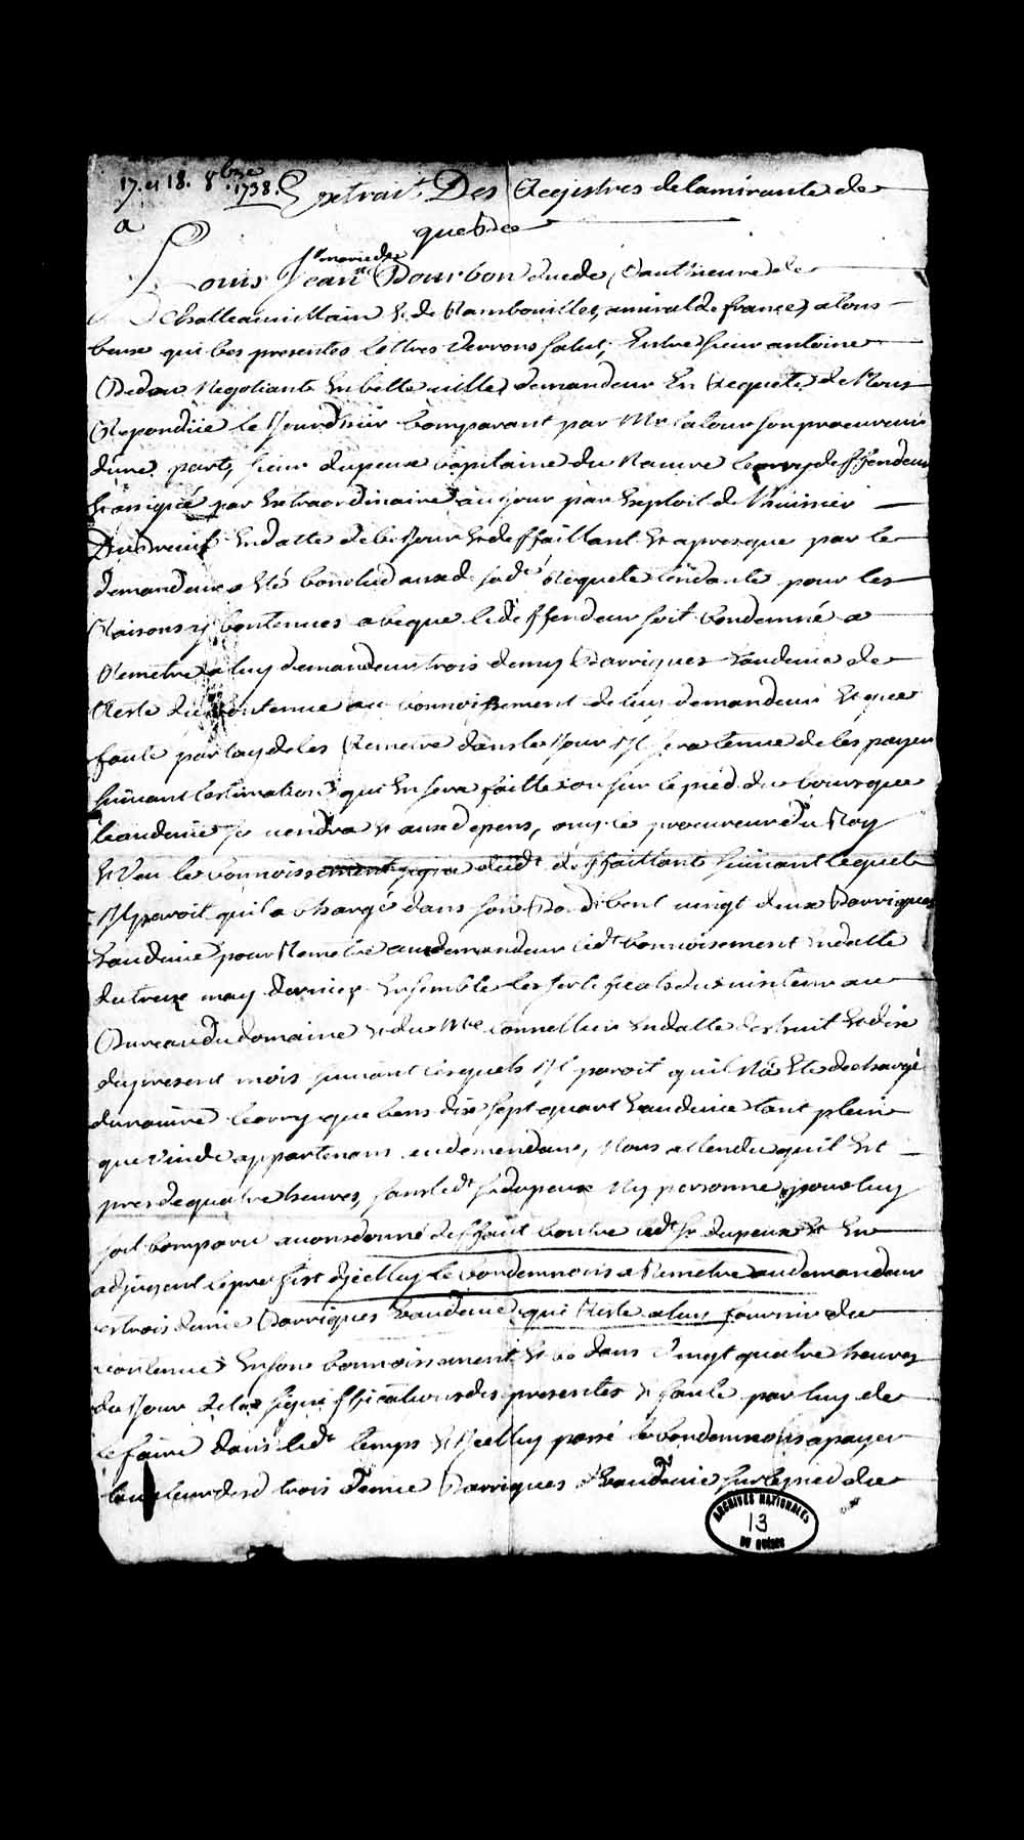 17. et 18. 8bre
1738. Extrait Des Registres de lamirauté de
a
quebec
Louis Jean Marie de Bourbon duc de, Ponthieure de
Chatteauvillain & de Rambouillet, amiral de france, a tous
ceux qui ces presentes Lettres verrons salut, Entre sieur antoine
negotiante En cette ville, demandeur En Requete de Nous
Repondüe le jourdhier comparant par Mre latour son procureur
dune part, sieur dupeux capitaine du Navire le deffendeur
Et assigné par Extraordinaire au jour par Exploit de Lhuissier
Dubreuil En datte de ce jour Et deffaillant Et apres que par le
demandeur a Eté conclud aux fins de sade Requete tendante pour les
Raisons y contenues a ce que le deffendeur soit condemné a
Remetre a luy demandeur trois demy Barriques Eaudevie de
Reste du contenue au connoissement de luy demandeur Et que
faute par luy de les Remetre dans le jour Il sera tenue de les payer
suivant lestimation qui En sera faitte ou sur le pied du cours que
leaudevie se vendra & aux depens, ouy le procureur du Roy
& Veu le connoissement signé dudt deffaillant suivant lequel
Il paroit qu'il a chargé dans son Bord cent vingt deux Barriques
Eaudevie pour Remetre au demandeur ledt connoissement En datte
du treize may dernier Ensemble les sertificats du visiteur au
Bureau du domaine & du Mre tonnellier En datte des huit & dix
du present mois suivant lesquels Il paroit qu'il Na Eté dechargé
du navire que cens dix sept quart Eaudevie tant plein
que vuide appartenans au demandeur, Nous attendu quil Est
pres de quatre heures, sans ledt Sr dupeux Ny personne pour luy
soit comparu avons donné deffaut contre ledt Sr dupeux & En
adjugent le proffist dicelluy le condemnons a Remetre au demandeur
les trois demie Barriques Eaudevie qui Reste a luy fournir du
contenue En son connoissement & ce dans Vingt quatre heures
du Jour de la signiffication des presentes & faute par luy de
ce faire dans ledt temps & Icelluy passé le condemnons a payer
la valleur desd trois demie Barriques Eaudevie sur le pied du
ARCHIVES NATIONALES
13
DU QUÉBEC